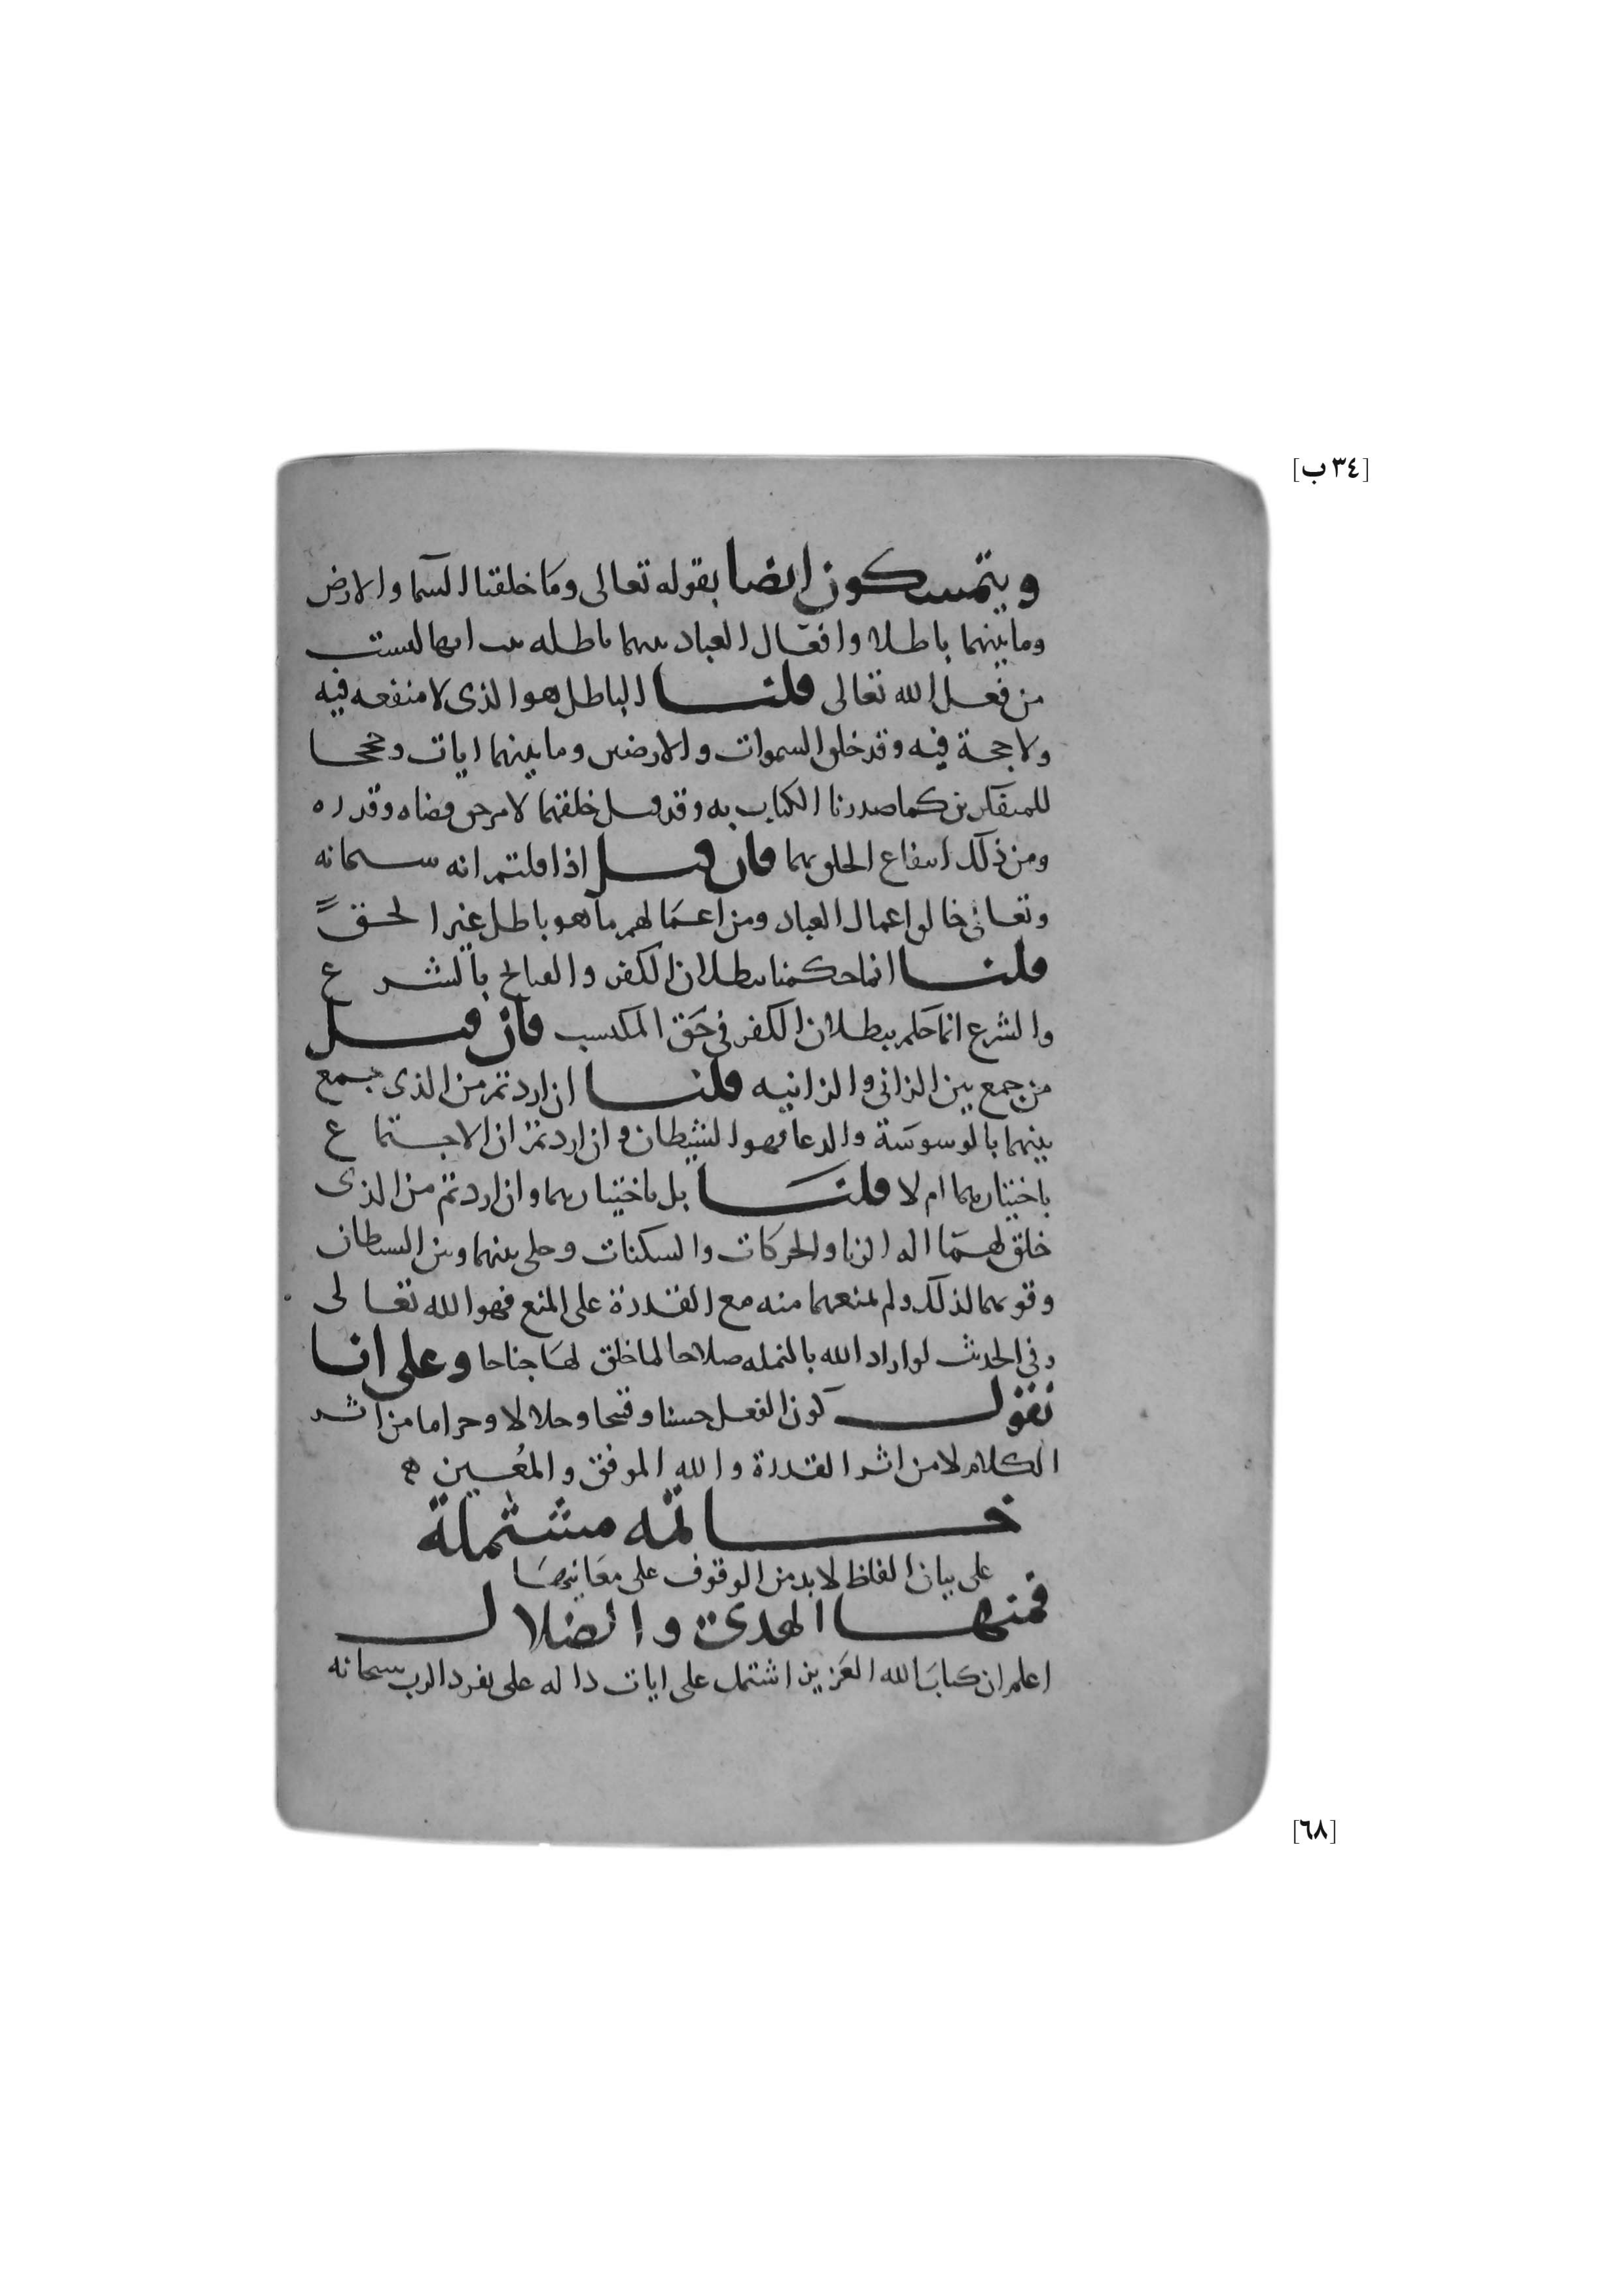 [٣٤ ب]
ويتمسكون ايضا بقوله تعالى وما خلقنا السما والارض
وما بينهما باطلا وافعال العباد بينهما باطله ثبت انها ليست
من فعل الله تعالى قلنا الباطل هو الذى لا منفعه فيه
ولا حجة فيه وقد خلق السموات والارضين وما بينهما ايات وحججا
للمتفكرين كما صدرنا الكتاب به وقد قيل خلقهما لامر حق قضاه وقدره
ومن ذلك انتفاع الخلق بهما فان قيل اذا قلتم انه سبحانه
وتعالى خالق اعمال العباد ومن اعمالهم ما هو باطل غير الحق
قلنا انما حكمنا ببطلان الكفر والقبائح بالشرع
والشرع انما حكم ببطلان الكفر فى حق المكتسب فان قيل
من جمع بين الزانى والزانيه قلنا ان اردتم من الذى جمع
بينهما بالوسوسة والدعا فهو الشيطان وان اردتم ان الاجتماع
باختيارهما ام لا قلنا بل باختيارهما وان اردتم من الذى
خلق لهما اله الزنا والحركات والسكنات وخلى بينهما وبين الشيطان
وقويهما لذلك ولم يمنعهما منه مع القدرة على المنع فهو الله تعالى
وفى الحديث لو اراد الله بالنمله صلاحا لما خلق لها جناحا وعلى انا
نقول كون الفعل حسنا وقبيحا وحلالا وحراما من اثر
الكلام لا من اثر القدرة والله الموفق والمعين ه
خاتمه مشتملة
على بيان الفاظ لابد من الوقوف على معانيها
فمنها الهدى والضلال
اعلم ان كتاب الله العزيز اشتمل على ايات داله على تفرد الرب سبحانه
[٦٨]